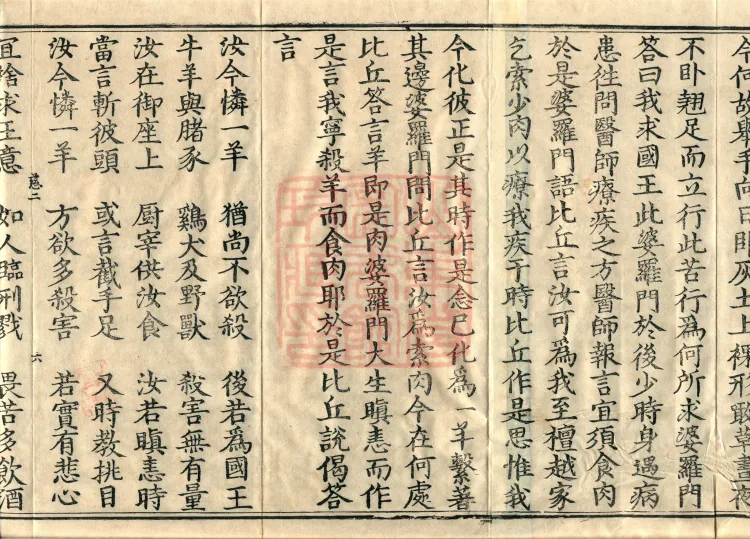 不卧翹足而立行此苦行為何所求婆羅門
答曰我求國王此婆羅門於後少時身遇病
患徃問醫師療疾之方醫師報言宜須食肉
於是婆羅門語比丘言汝可為我至檀越家
乞索少肉以療我疾于時比丘作是思惟我
今化彼正是其時作是念已化為一羊繫著
其邊婆羅門問比丘言汝為索肉今在何處
比丘荅言羊即是肉婆羅門大生瞋恚而作
是言我寧殺羊而食肉耶於是比丘說偈荅
言
汝今憐一羊 猶尚不欲殺 後若為國王
牛羊與賭豕 鷄犬及野獸 殺害無有量
汝在御座上 厨宰供汝食 汝若瞋恚時
當言斬彼頭 或言截手足 又時教挑目
汝今憐一羊 方欲多殺害 若實有悲心
六
宜捨求王意 如人臨刑戮 畏苦多飲酒